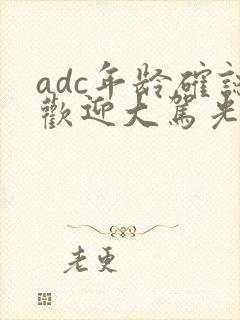 adc年龄確認
歡迎大駕光
老更